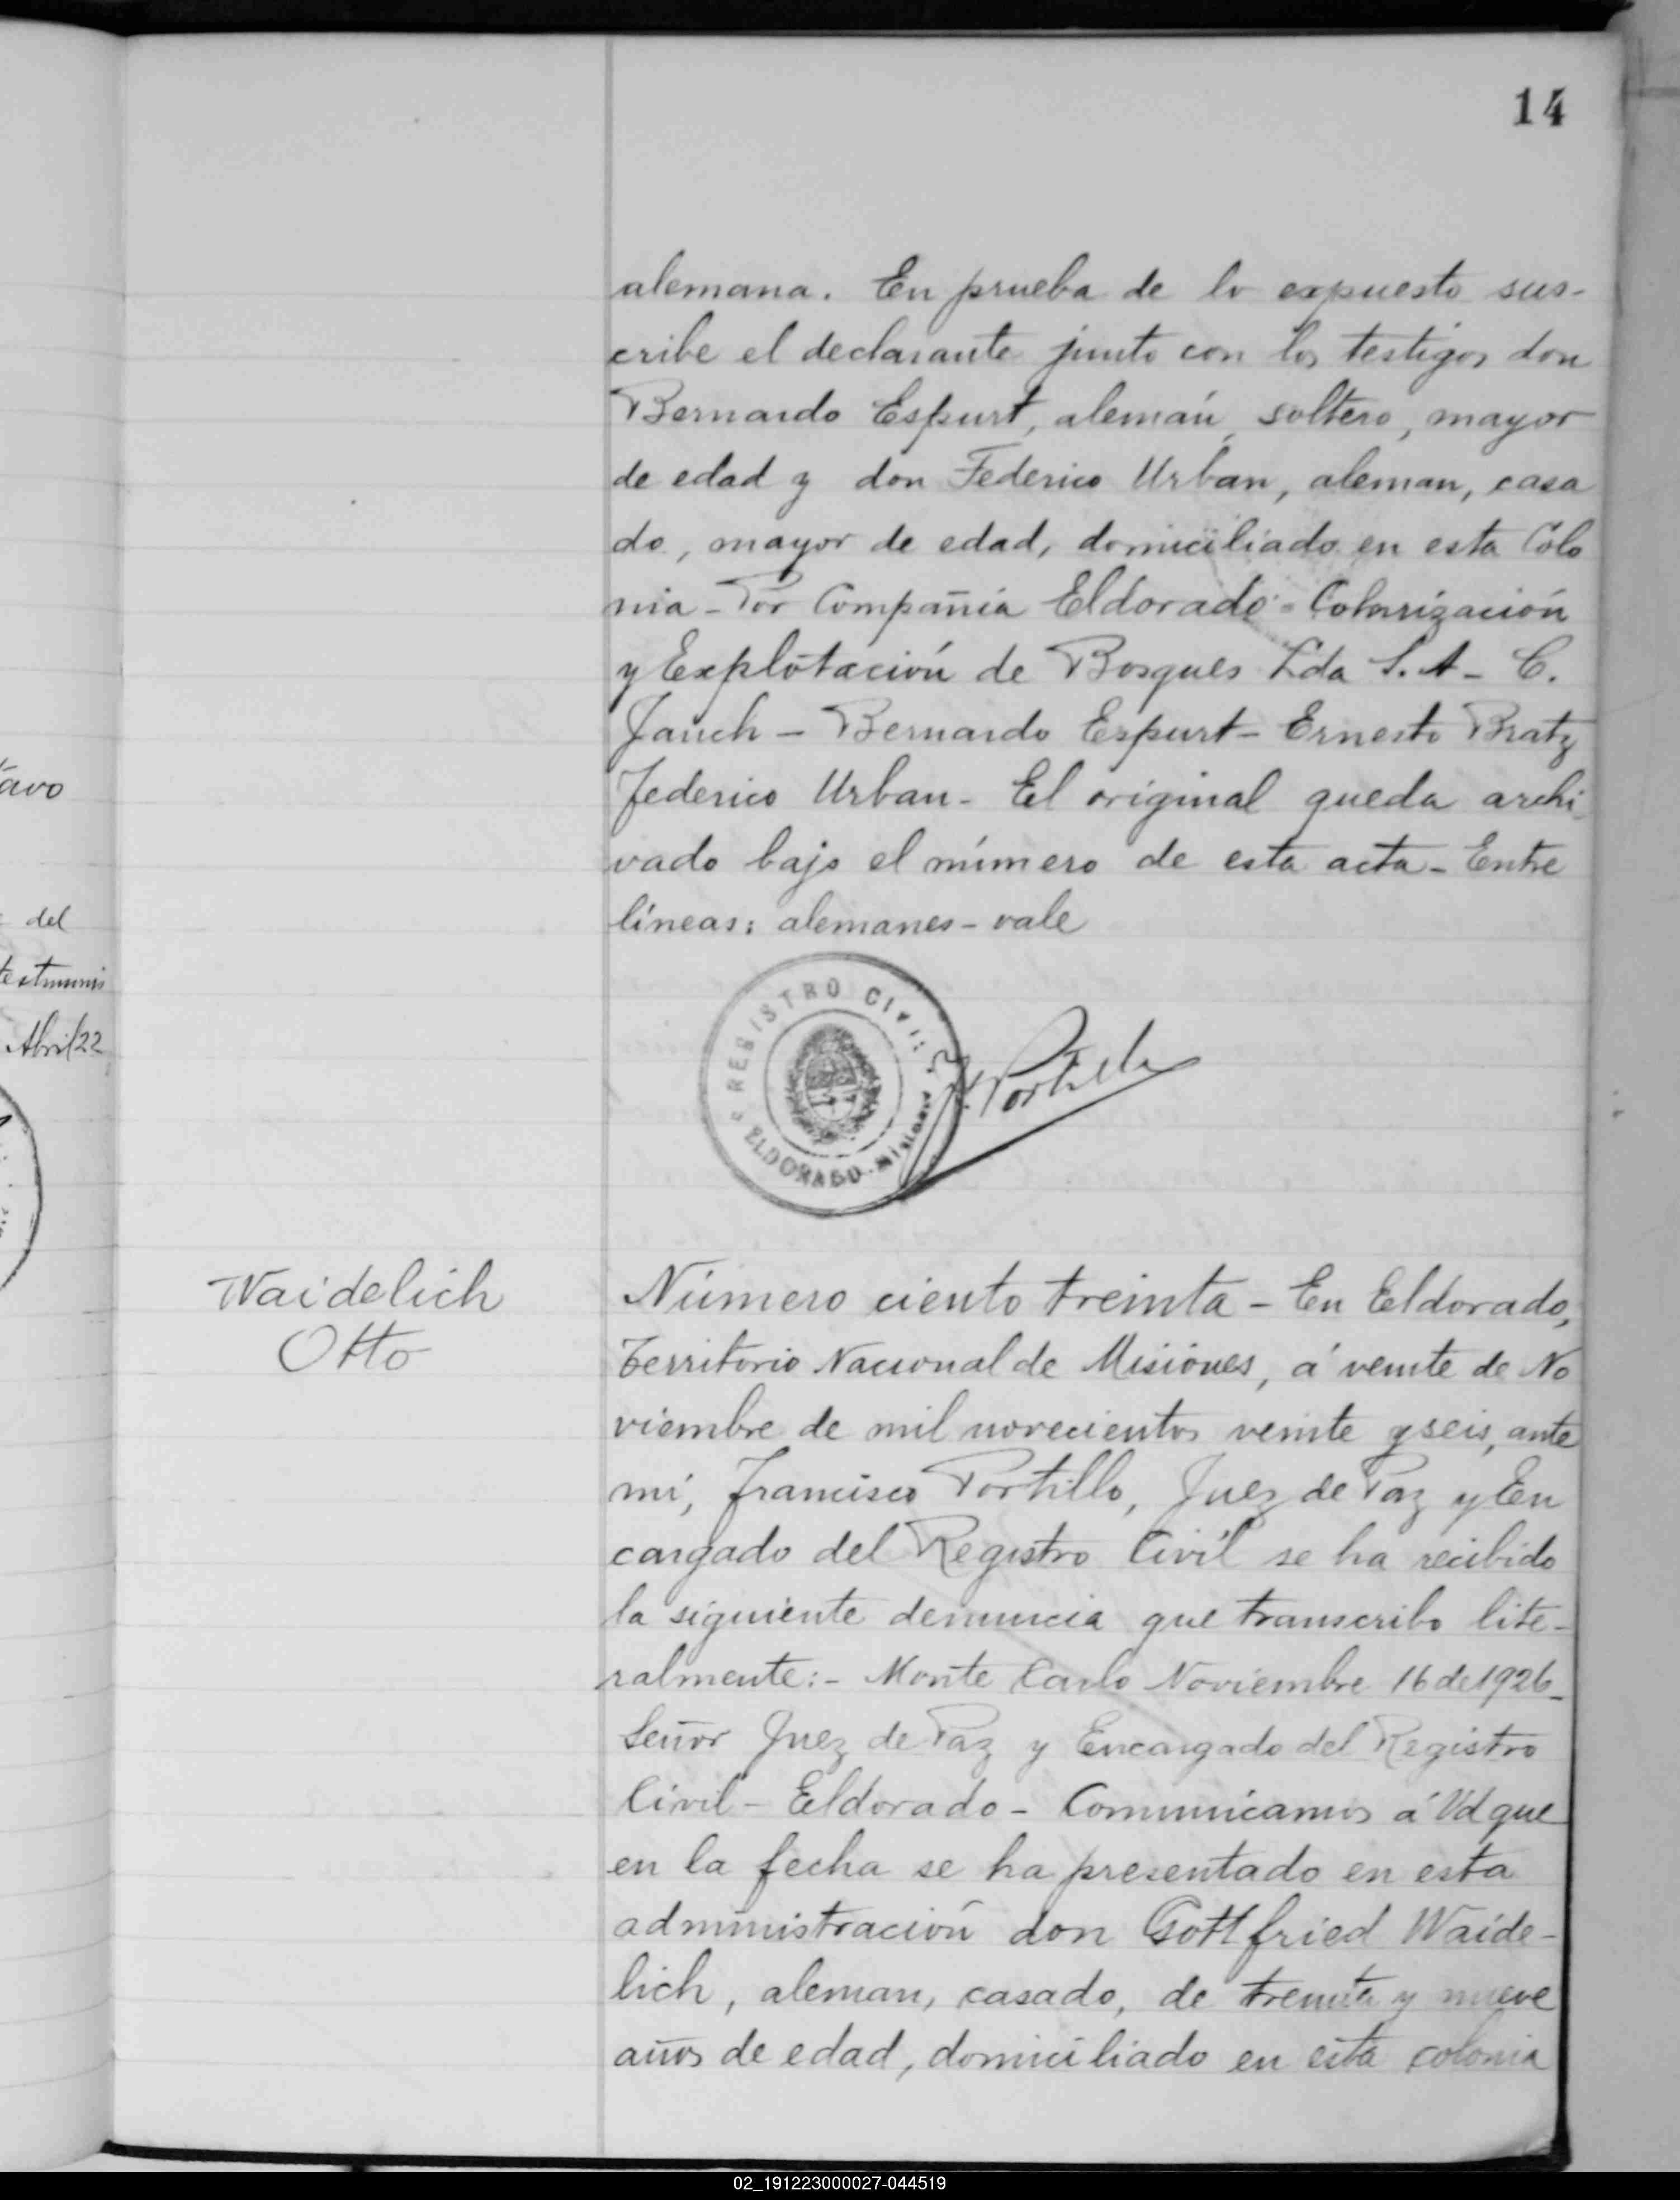 14
alemana. En prueba de lo expuesto sus-
cribe el declarante junto con los testigos don
Bernardo Espurt, alemán, soltero, mayor
de edad y don Federico Urban, aleman, casa
do, mayor de edad, domiciliado en esta Colo
nia - Por Compañia Eldorado - Colonización
y Explotación de Bosques Lda S. A - C.
Jauch - Bernardo Espurt - Ernesto Bratz
Federico Urban - El original queda archi
vado bajo el número de esta acta - Entre
líneas: alemanes - vale
REGISTRO CIVIL
ELDORADO - Misiones
F. Portillo
Waidelich
Otto
Número ciento treinta - En Eldorado,
Territorio Nacional de Misiones, á veinte de No
viembre de mil novecientos veinte y seis, ante
mí, Francisco Portillo, Juez de Paz y En
cargado del Registro Civil se ha recibido
la siguiente denuncia que transcribo lite-
ralmente: - Monte Carlo Noviembre 16 de 1926 -
Señor Juez de Paz y Encargado del Registro
Civil - Eldorado - Comunicamos á Vd que
en la fecha se ha presentado en esta
administración don Gottfried Waide-
lich, aleman, casado, de treinta y nueve
años de edad, domiciliado en esta colonia
avo
del
testimonio
Abril 22
02_191223000027-044519